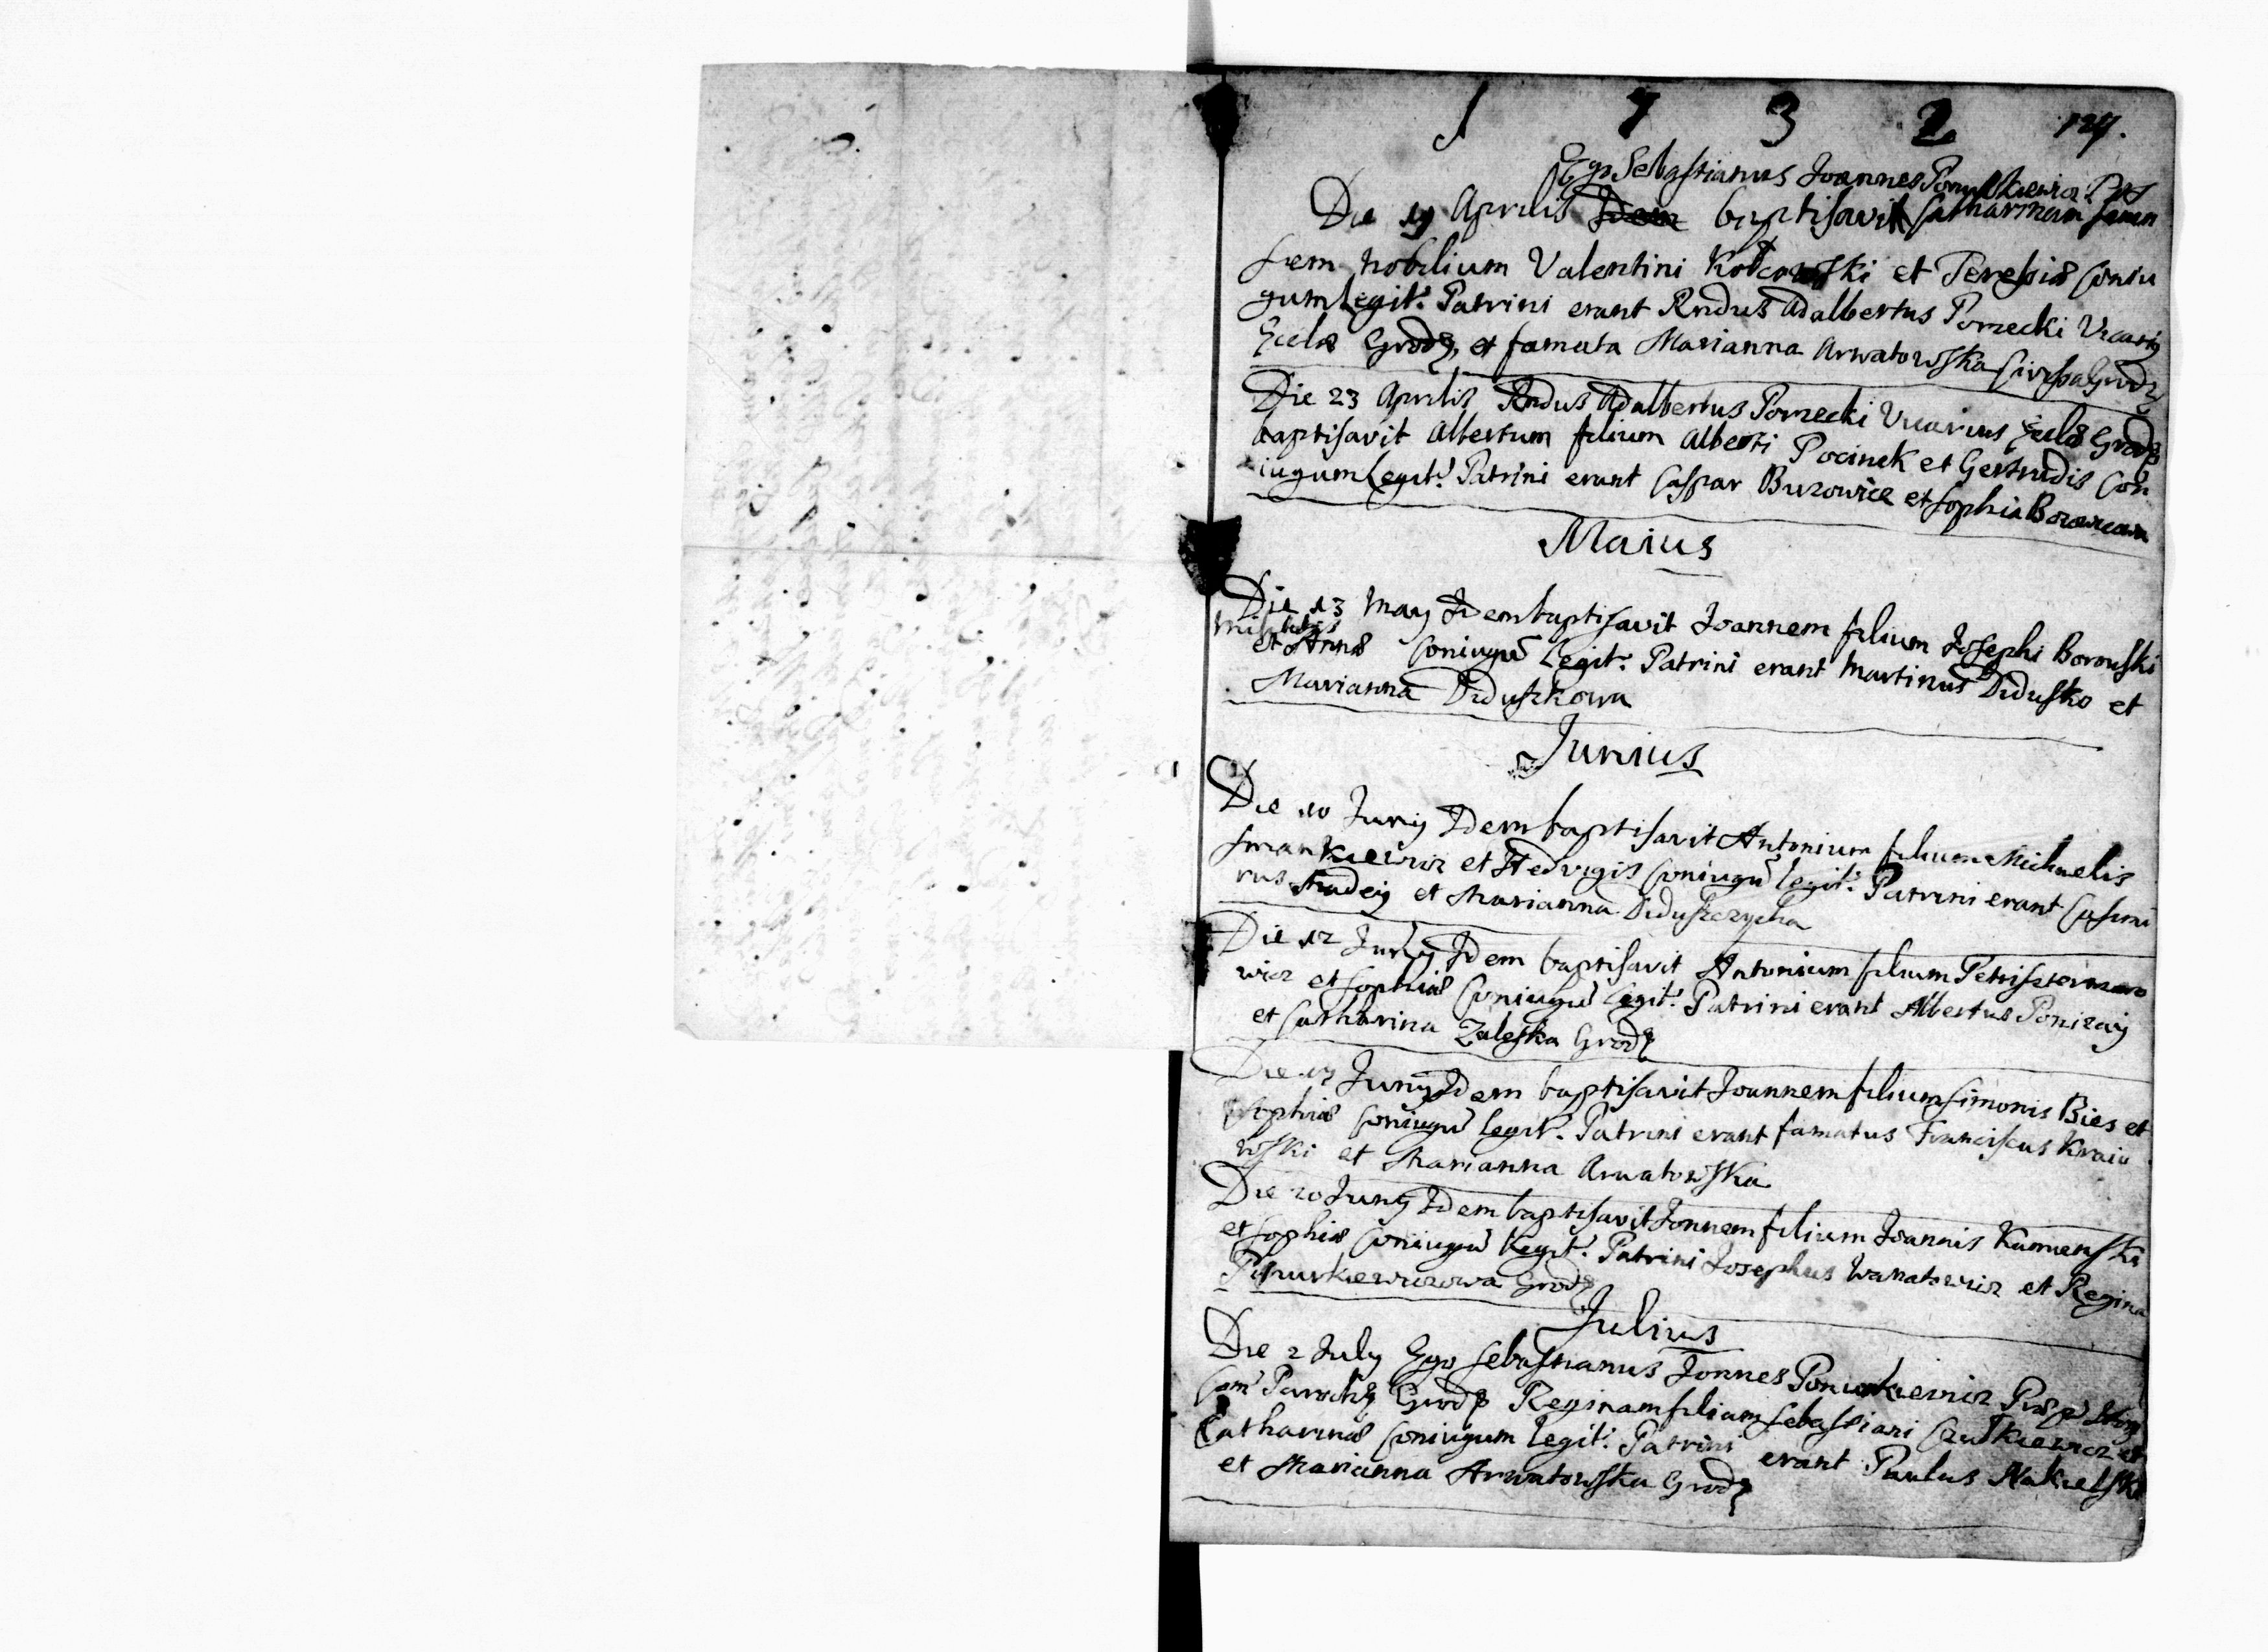 1 7 3 2 127.
Ego Sebastianus Joannes
Die 19 Aprilis baptisavit Catharinam Senen
sem Nobilium Valentini et Teresiæ Coniu
gum Legit: Patrini erant Rndus Adalbertus Pomecki Vicarig
Eccliæ Grodz, et famata Marianna Arwatowska Grodz
Die 23 Aprilis Rndus Adalbertus Pomecki Vicarius Eccliæ Grodz
baptisavit Albertum filium Alberti Pocinek et Gertrudis Con
iugum Legit: Patrini erant Caspar Burowicz et Sophia
Maius
Die 13 May Idem baptisavit Joannem filium Josephi Borowski
et Annæ Coniugũ Legit: Patrini erant Martinus Dydusko et
Marianna Dyduszkowa
Junius
Die 10 Junij Idem baptisavit Antonium filium Michaelis
Smankiewicz et Hedvigis Coniugũ legit: Patrini erant Casimi
rus Madeij et Marianna Dyduszczycha
Die 12 Junij Idem baptisavit Antonium filium Petri
wicz et Sophiæ Coniugũ Legit: Patrini erant Albertus Ponizaij
et Catharina Zaleska Grodz
Die 17 Junij Idem baptisavit Joannem filium Simonis Bies et
Sophiæ Coniugũ Legit: Patrini erant famatus Franciscus Kraiu
wski et Marianna Arwatowska
Die 20 Junij Idem baptisavit Jonnem filium Joannis Kamenski
et Sophiæ Coniugũ Legit: Patrini Josephus Wanatowicz et Regina
Pisurkiewiczowa Grodz
Julius
Die 2 July Ego Sebastianus Jonnes Ponurkiewicz
Grodz Reginam filiam Sebastiani et
Catharinæ Coniugum Legit: Patrini erant Paulus Nakielski
et Marianna Arwatowska Grodz